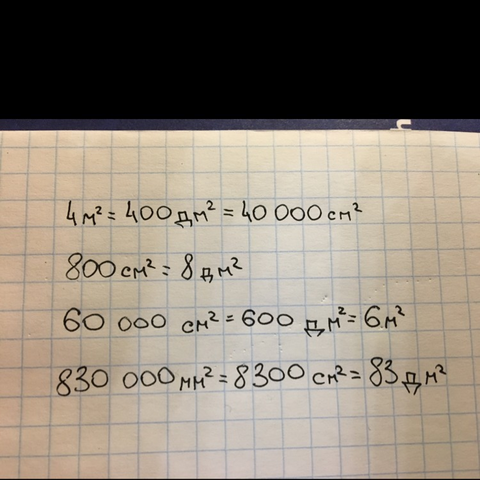 4 м² = 400 дм² = 40 000 см²
800 см² = 8 дм²
60 000 см² = 600 дм² = 6 м²
830 000 мм² = 8300 см² = 83 дм²